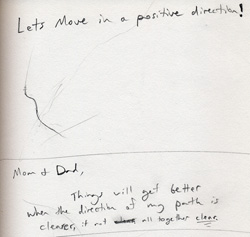 Lets Move in a positive direction!
Mom & Dad,
Things will get better
when the direction of my path is
clearer, if not all together clear.